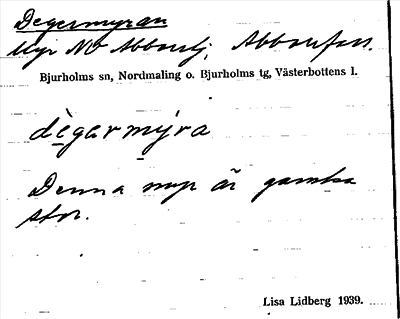 Degermyran
Myr NO Abborrtj, Abborrfors.
Bjurholms sn, Nordmaling o. Bjurholms tg, Västerbottens l.
dègarmỳra
Denna myr är ganska
stor.
Lisa Lidberg 1939.